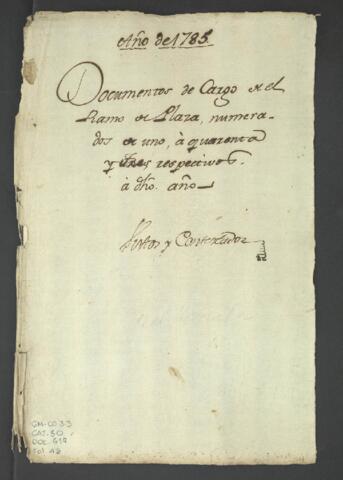 Año de 1785.
Documentos de Cargo de el
Ramo de Plaza, numera-
dos de uno, à quarenta
y tres respectivos.
à dho. año
y
GM-CO 33
CAJ. 30
DOC. 619
fol. 48